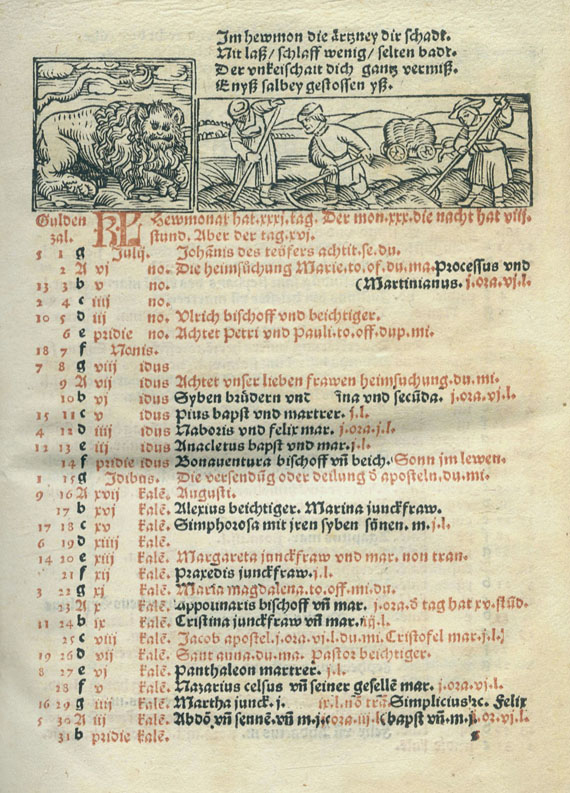 Im hewmon die ärtzney dir schadt.
Nit laß / schlaff wenig / selten badt.
Der vnkeischait dich gantz vermiß.
Enyß salbey gestossen yß.
Gulden zal.
KL Hewmonat hat .xxxj. tag. Der mon .xxx. die nacht hat viij.
stund. Aber der tag .xvj.
5 1 g Julij. Johānis des teüfers achtit. se. du.
2 A vj no. Die heimsüchung Marie. to. of. du. ma. Processus vnd
13 3 b v no. (Martinianus. j. ora. vj. l.
2 4 c iiij no.
10 5 d iij no. Vlrich bischoff vnd beichtiger.
6 e pridie no. Achtet Petri vnd Pauli. to. off. dup. mi.
18 7 f Nonis.
7 8 g viij idus
9 A vij idus Achtet vnser lieben frawen heimsuchung. du. mi.
10 b vj idus Syben brüdern vnd īna vnd secūda. j. ora. vj. l.
15 11 c v idus Pius bapst vnd martrer. j. l.
4 12 d iiij idus Naboris vnd felix mar. j. ora. j. l.
12 13 e iij idus Anacletus bapst vnd mar. j. l.
14 f pridie idus Bonauentura bischoff vñ beich. Sonn im lewen.
1 15 g Idibus. Die versendūg oder deilung ð aposteln. du. mi.
9 16 A xvij kalē. Augusti.
17 b xvj kalē. Alexius beichtiger. Marina junckfraw.
17 18 c xv kalē. Simphorosa mit jren syben sönen. m. j. l.
6 19 d xiiij kalē.
14 20 e xiij kalē. Margareta junckfraw vnd mar. non tran.
21 f xij kalē. Praxedis junckfraw. j. l.
3 22 g xj kalē. Maria magdalena. to. off. mi. du.
23 A x kalē. Appolinaris bischoff vñ mar. j. ora. ð tag hat xv. stūd.
11 24 b ix kalē. Cristina junckfraw vñ mar. iij. l.
25 c viij kalē. Jacob apostel. j. ora. vj. l. du. mi. Cristofel mar. j. l.
19 26 d vij kalē. Sant anna. du. ma. Pastor beichtiger.
8 27 e vj kalē. Panthaleon martrer. j. l.
28 f v kalē. Nazarius celsus vñ seiner gesellē mar. j. ora. vj. l.
16 29 g iiij kalē. Martha junck. j. ix. l. nō trā Simplicius ꝛc. Felix
5 30 A iij kalē. Abdō vñ sennē. vñ m. j. ora iij. l. (bapst vñ. m. j. or. vj. l.
31 b pridie kalē.